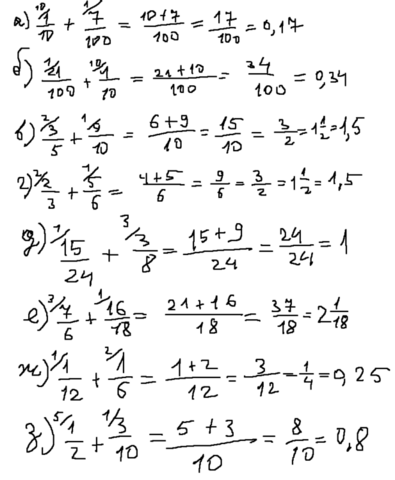 а) ¹⁰⁄1/10 + ¹⁄7/100 = 10+7/100 = 17/100 = 0,17
б) ¹⁄21/100 + ¹⁰⁄1/10 = 21+10/100 = 34/100 = 0,34
в) ²⁄3/5 + ¹⁄9/10 = 6+9/10 = 15/10 = 3/2 = 1 1/2 = 1,5
г) ²⁄2/3 + ¹⁄5/6 = 4+5/6 = 9/6 = 3/2 = 1 1/2 = 1,5
д) ¹⁄15/24 + ³⁄3/8 = 15+9/24 = 24/24 = 1
е) ³⁄7/6 + ¹⁄16/18 = 21+16/18 = 37/18 = 2 1/18
ж) ¹⁄1/12 + ²⁄1/6 = 1+2/12 = 3/12 = 1/4 = 0,25
з) ⁵⁄1/2 + ¹⁄3/10 = 5+3/10 = 8/10 = 0,8